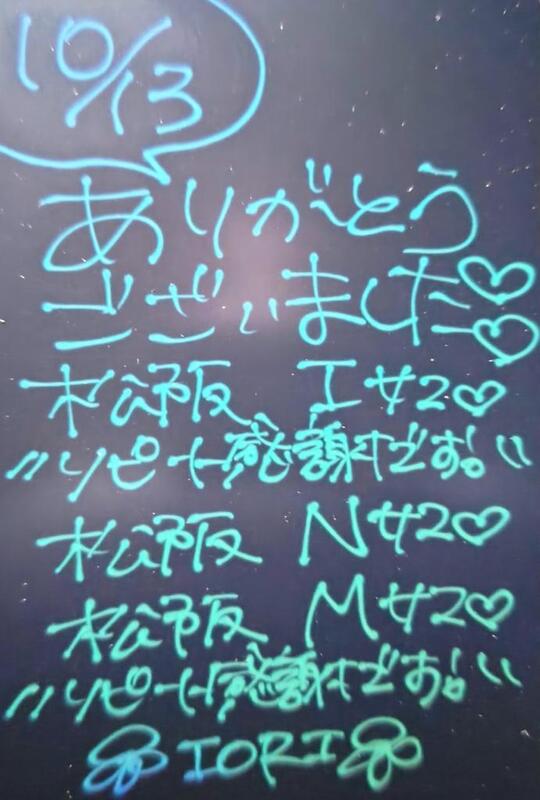 10/13
ありがとう
ございました♡♡
松阪 Iサマ♡
〃リピート感謝です。〃
松阪 Nサマ♡
松阪 Mサマ♡
〃リピート感謝です。〃
IORI